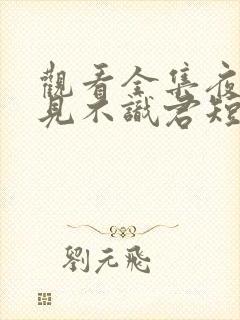 觀看全集夜
見不識君短
劉元飛